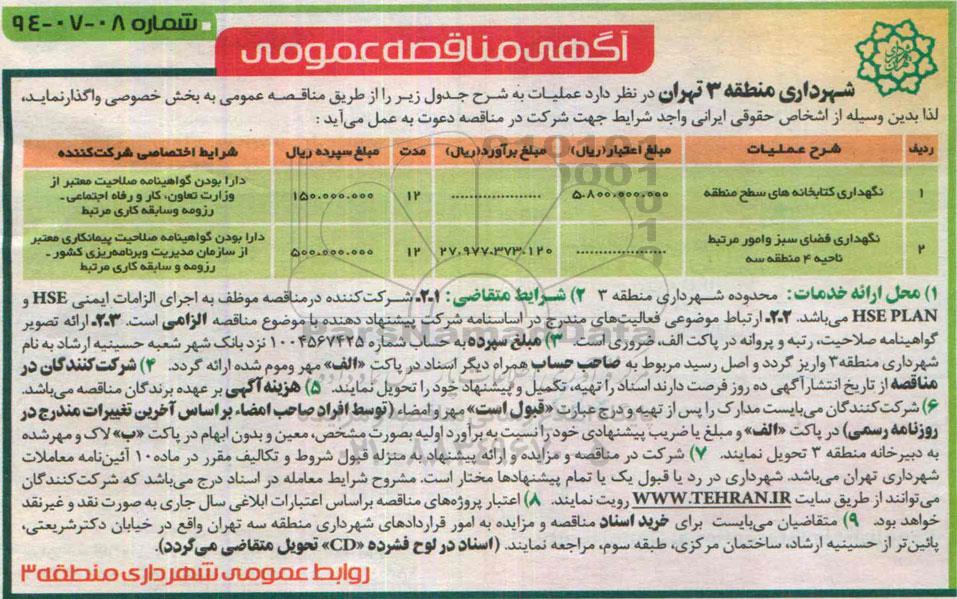 شماره ۰۸-۰۷-۹۴
آگهی مناقصه عمومی
شهرداری منطقه ۳ تهران در نظر دارد عملیات به شرح جدول زیر را از طریق مناقصه عمومی به بخش خصوصی واگذارنماید،
لذا بدین وسیله از اشخاص حقوقی ایرانی واجد شرایط جهت شرکت در مناقصه دعوت به عمل می‌آید :
ردیف شرح عملیات مبلغ اعتبار(ریال) مبلغ برآورد(ریال) مدت مبلغ سپرده ریال شرایط اختصاصی شرکت‌کننده
۱ نگهداری کتابخانه های سطح منطقه ۵.۸۰۰.۰۰۰.۰۰۰ .................... ۱۲ ۱۵۰.۰۰۰.۰۰۰ دارا بودن گواهینامه صلاحیت معتبر از
وزارت تعاون، کار و رفاه اجتماعی -
رزومه وسابقه کاری مرتبط
۲ نگهداری فضای سبز وامور مرتبط
ناحیه ۴ منطقه سه .................... ۲۷.۹۷۷.۳۷۳.۱۲۰ ۱۲ ۵۰۰.۰۰۰.۰۰۰ دارا بودن گواهینامه صلاحیت پیمانکاری معتبر
از سازمان مدیریت وبرنامه‌ریزی کشور -
رزومه و سابقه کاری مرتبط
۱) محل ارائه خدمات: محدوده شهرداری منطقه ۳ ۲) شرایط متقاضی: ۲.۱. شرکت‌کننده درمناقصه موظف به اجرای الزامات ایمنی HSE و
HSE PLAN می‌باشد. ۲.۲. ارتباط موضوعی فعالیت‌های مندرج در اساسنامه شرکت پیشنهاد دهنده با موضوع مناقصه الزامی است. ۲.۳. ارائه تصویر
گواهینامه صلاحیت، رتبه و پروانه در پاکت الف، ضروری است. ۳) مبلغ سپرده به حساب شماره ۱۰۰۴۵۶۷۴۲۵ نزد بانک شهر شعبه حسینیه ارشاد به نام
شهرداری منطقه۳ واریز گردد و اصل رسید مربوط به صاحب حساب همراه دیگر اسناد در پاکت «الف» مهر وموم شده ارائه گردد. ۴) شرکت‌کنندگان در
مناقصه از تاریخ انتشارآگهی ده روز فرصت دارند اسناد را تهیه، تکمیل و پیشنهاد خود را تحویل نمایند. ۵) هزینه آگهی بر عهده برندگان مناقصه می‌باشد.
۶) شرکت‌کنندگان می‌بایست مدارک را پس از تهیه و درج عبارت «قبول است» مهر و امضاء (توسط افراد صاحب امضاء بر اساس آخرین تغییرات مندرج در
روزنامه رسمی) در پاکت «الف» و مبلغ یا ضریب پیشنهادی خود را نسبت به برآورد اولیه بصورت مشخص، معین و بدون ابهام در پاکت «ب» لاک و مهرشده
به دبیرخانه منطقه ۳ تحویل نمایند. ۷) شرکت در مناقصه و مزایده و ارائه پیشنهاد به منزله قبول شروط و تکالیف مقرر در ماده۱۰ آئین‌نامه معاملات
شهرداری تهران می‌باشد. شهرداری در رد یا قبول یک یا تمام پیشنهادها مختار است. مشروح شرایط معامله در اسناد درج می‌باشد که شرکت‌کنندگان
می‌توانند از طریق سایت WWW.TEHRAN.IR رویت نمایند. ۸) اعتبار پروژه‌های مناقصه براساس اعتبارات ابلاغی سال جاری به صورت نقد و غیرنقد
خواهد بود. ۹) متقاضیان می‌بایست برای خرید اسناد مناقصه و مزایده به امور قراردادهای شهرداری منطقه سه تهران واقع در خیابان دکترشریعتی،
پائین‌تر از حسینیه ارشاد، ساختمان مرکزی، طبقه سوم، مراجعه نمایند. (اسناد در لوح فشرده «CD» تحویل متقاضی می‌گردد).
روابط عمومی شهرداری منطقه۳